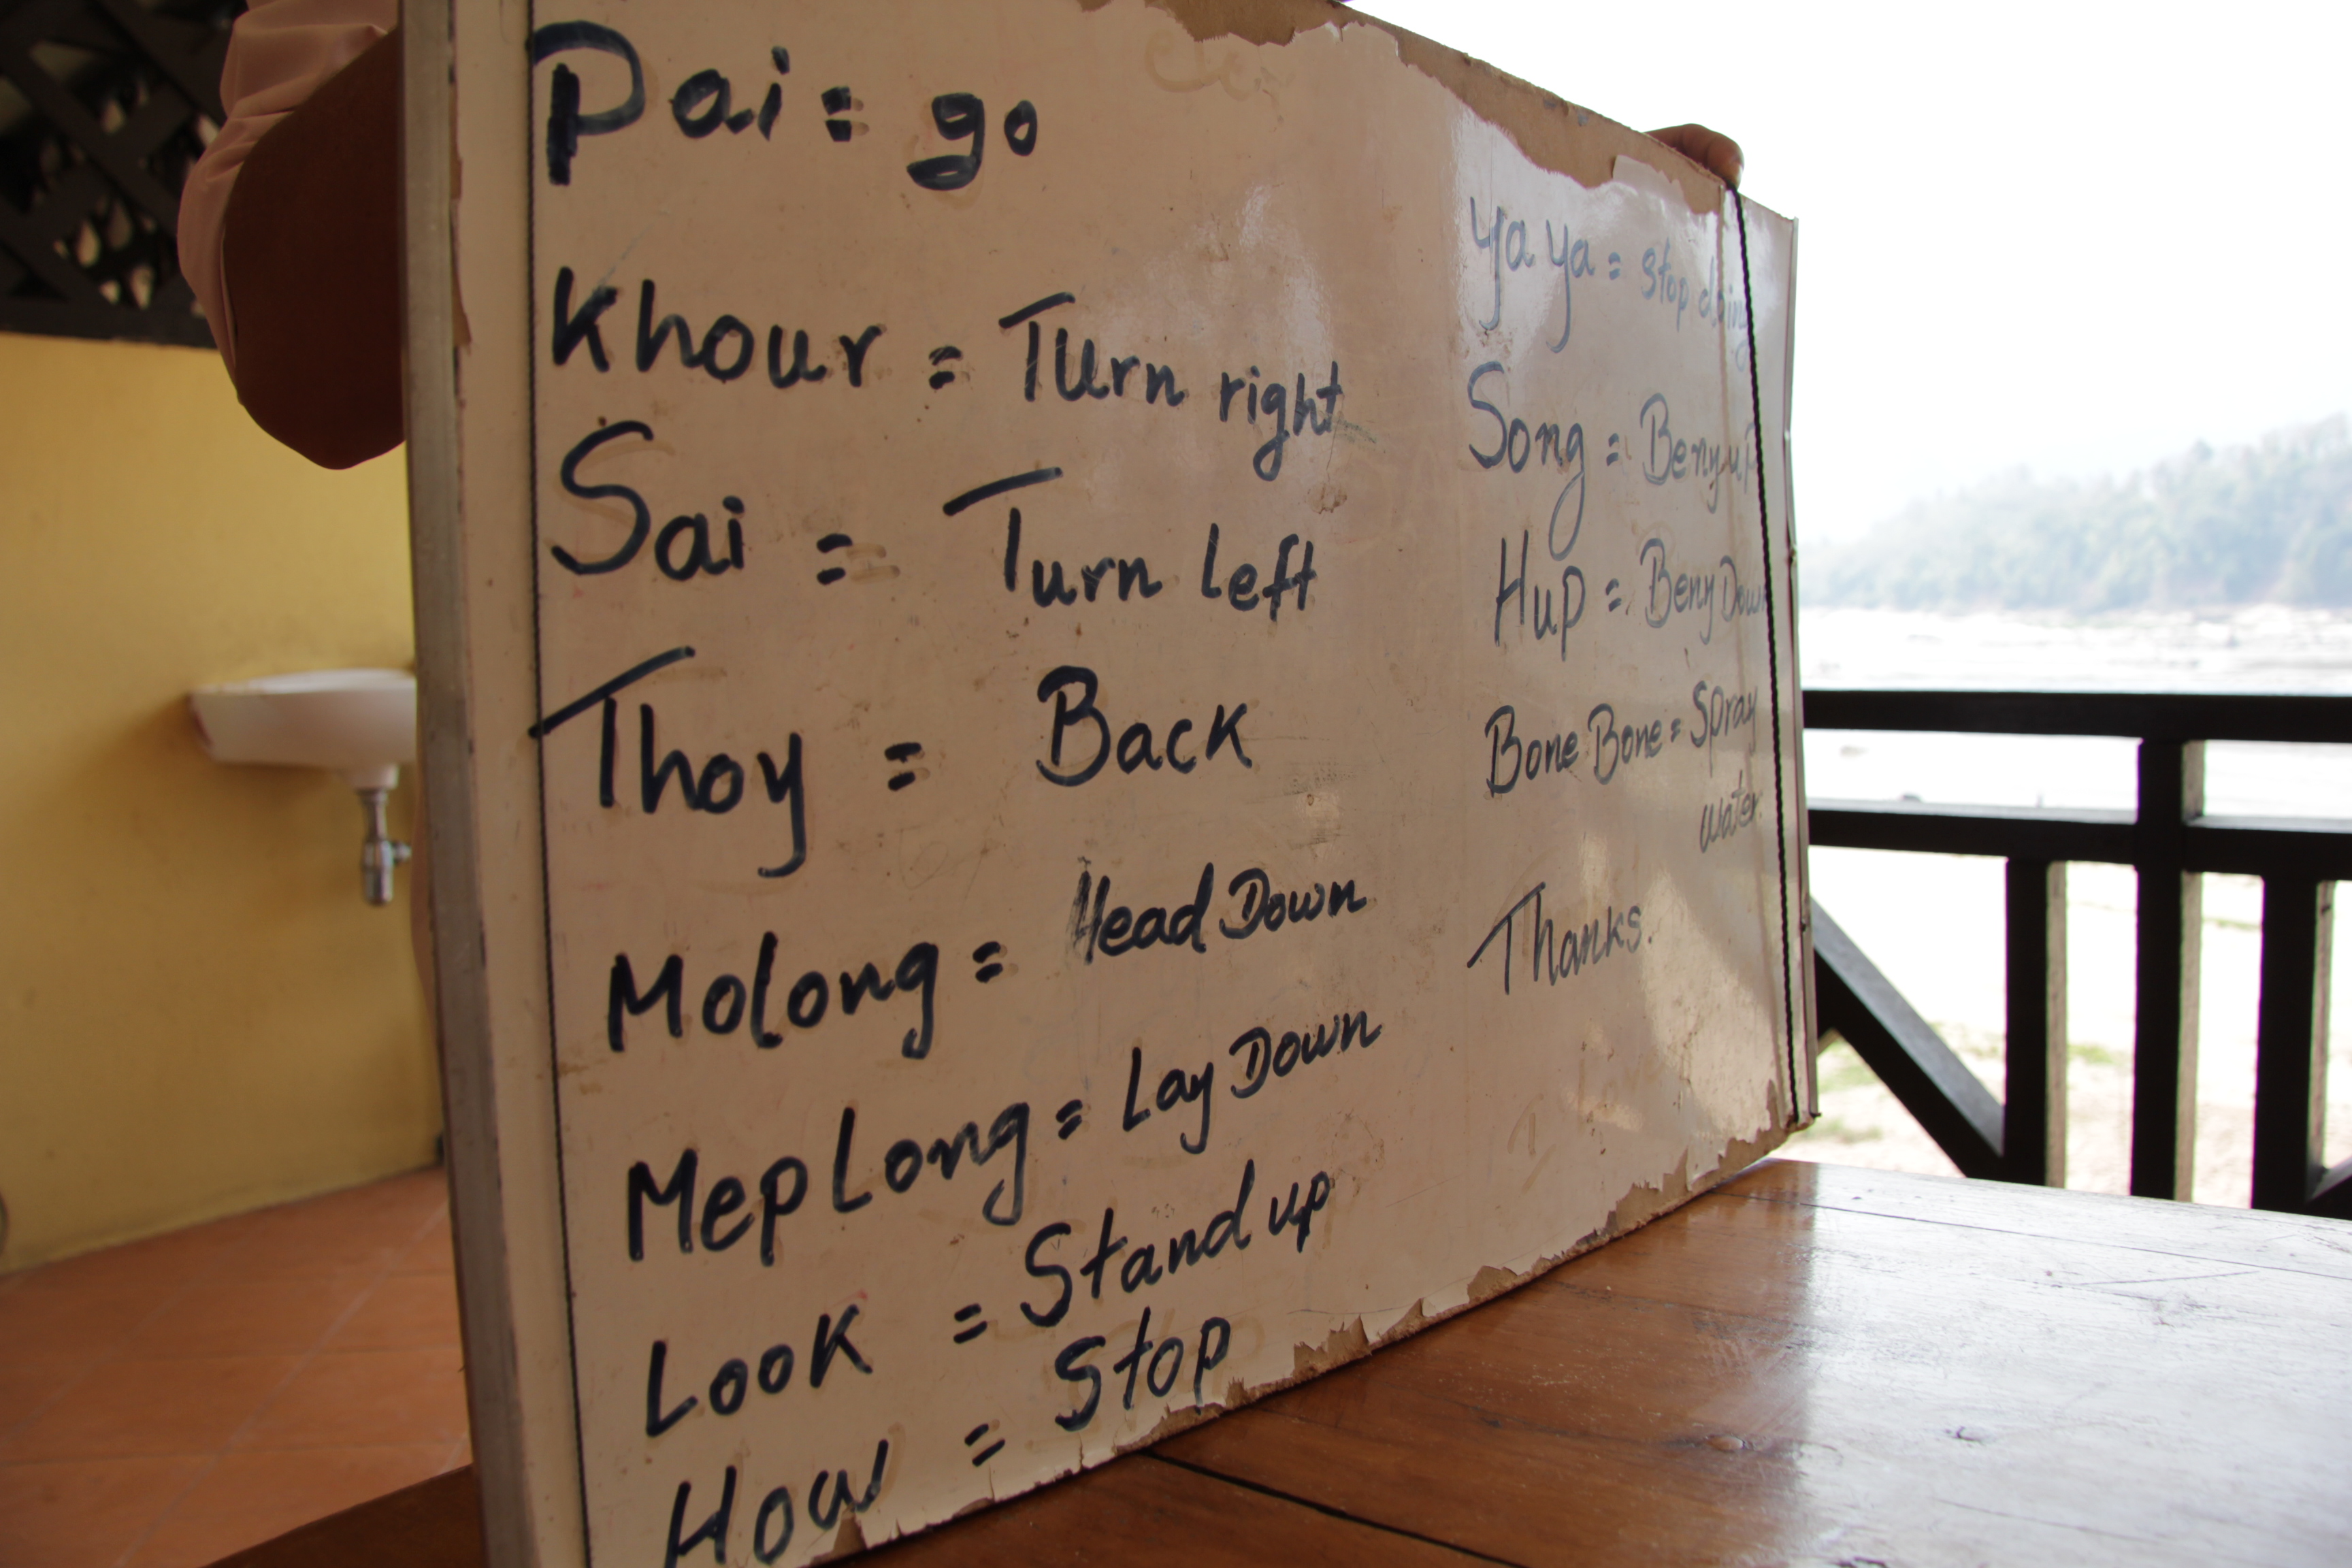 Pai = go
Khour = Turn right
Sai = Turn left
Thoy = Back
Molong = Head Down
Mep Long = Lay Down
Look = Stand up
How = Stop
Ya Ya = Stop doing
Song = Beny up
Hup = Beny Down
Bone Bone = Spray
water.
Thanks.